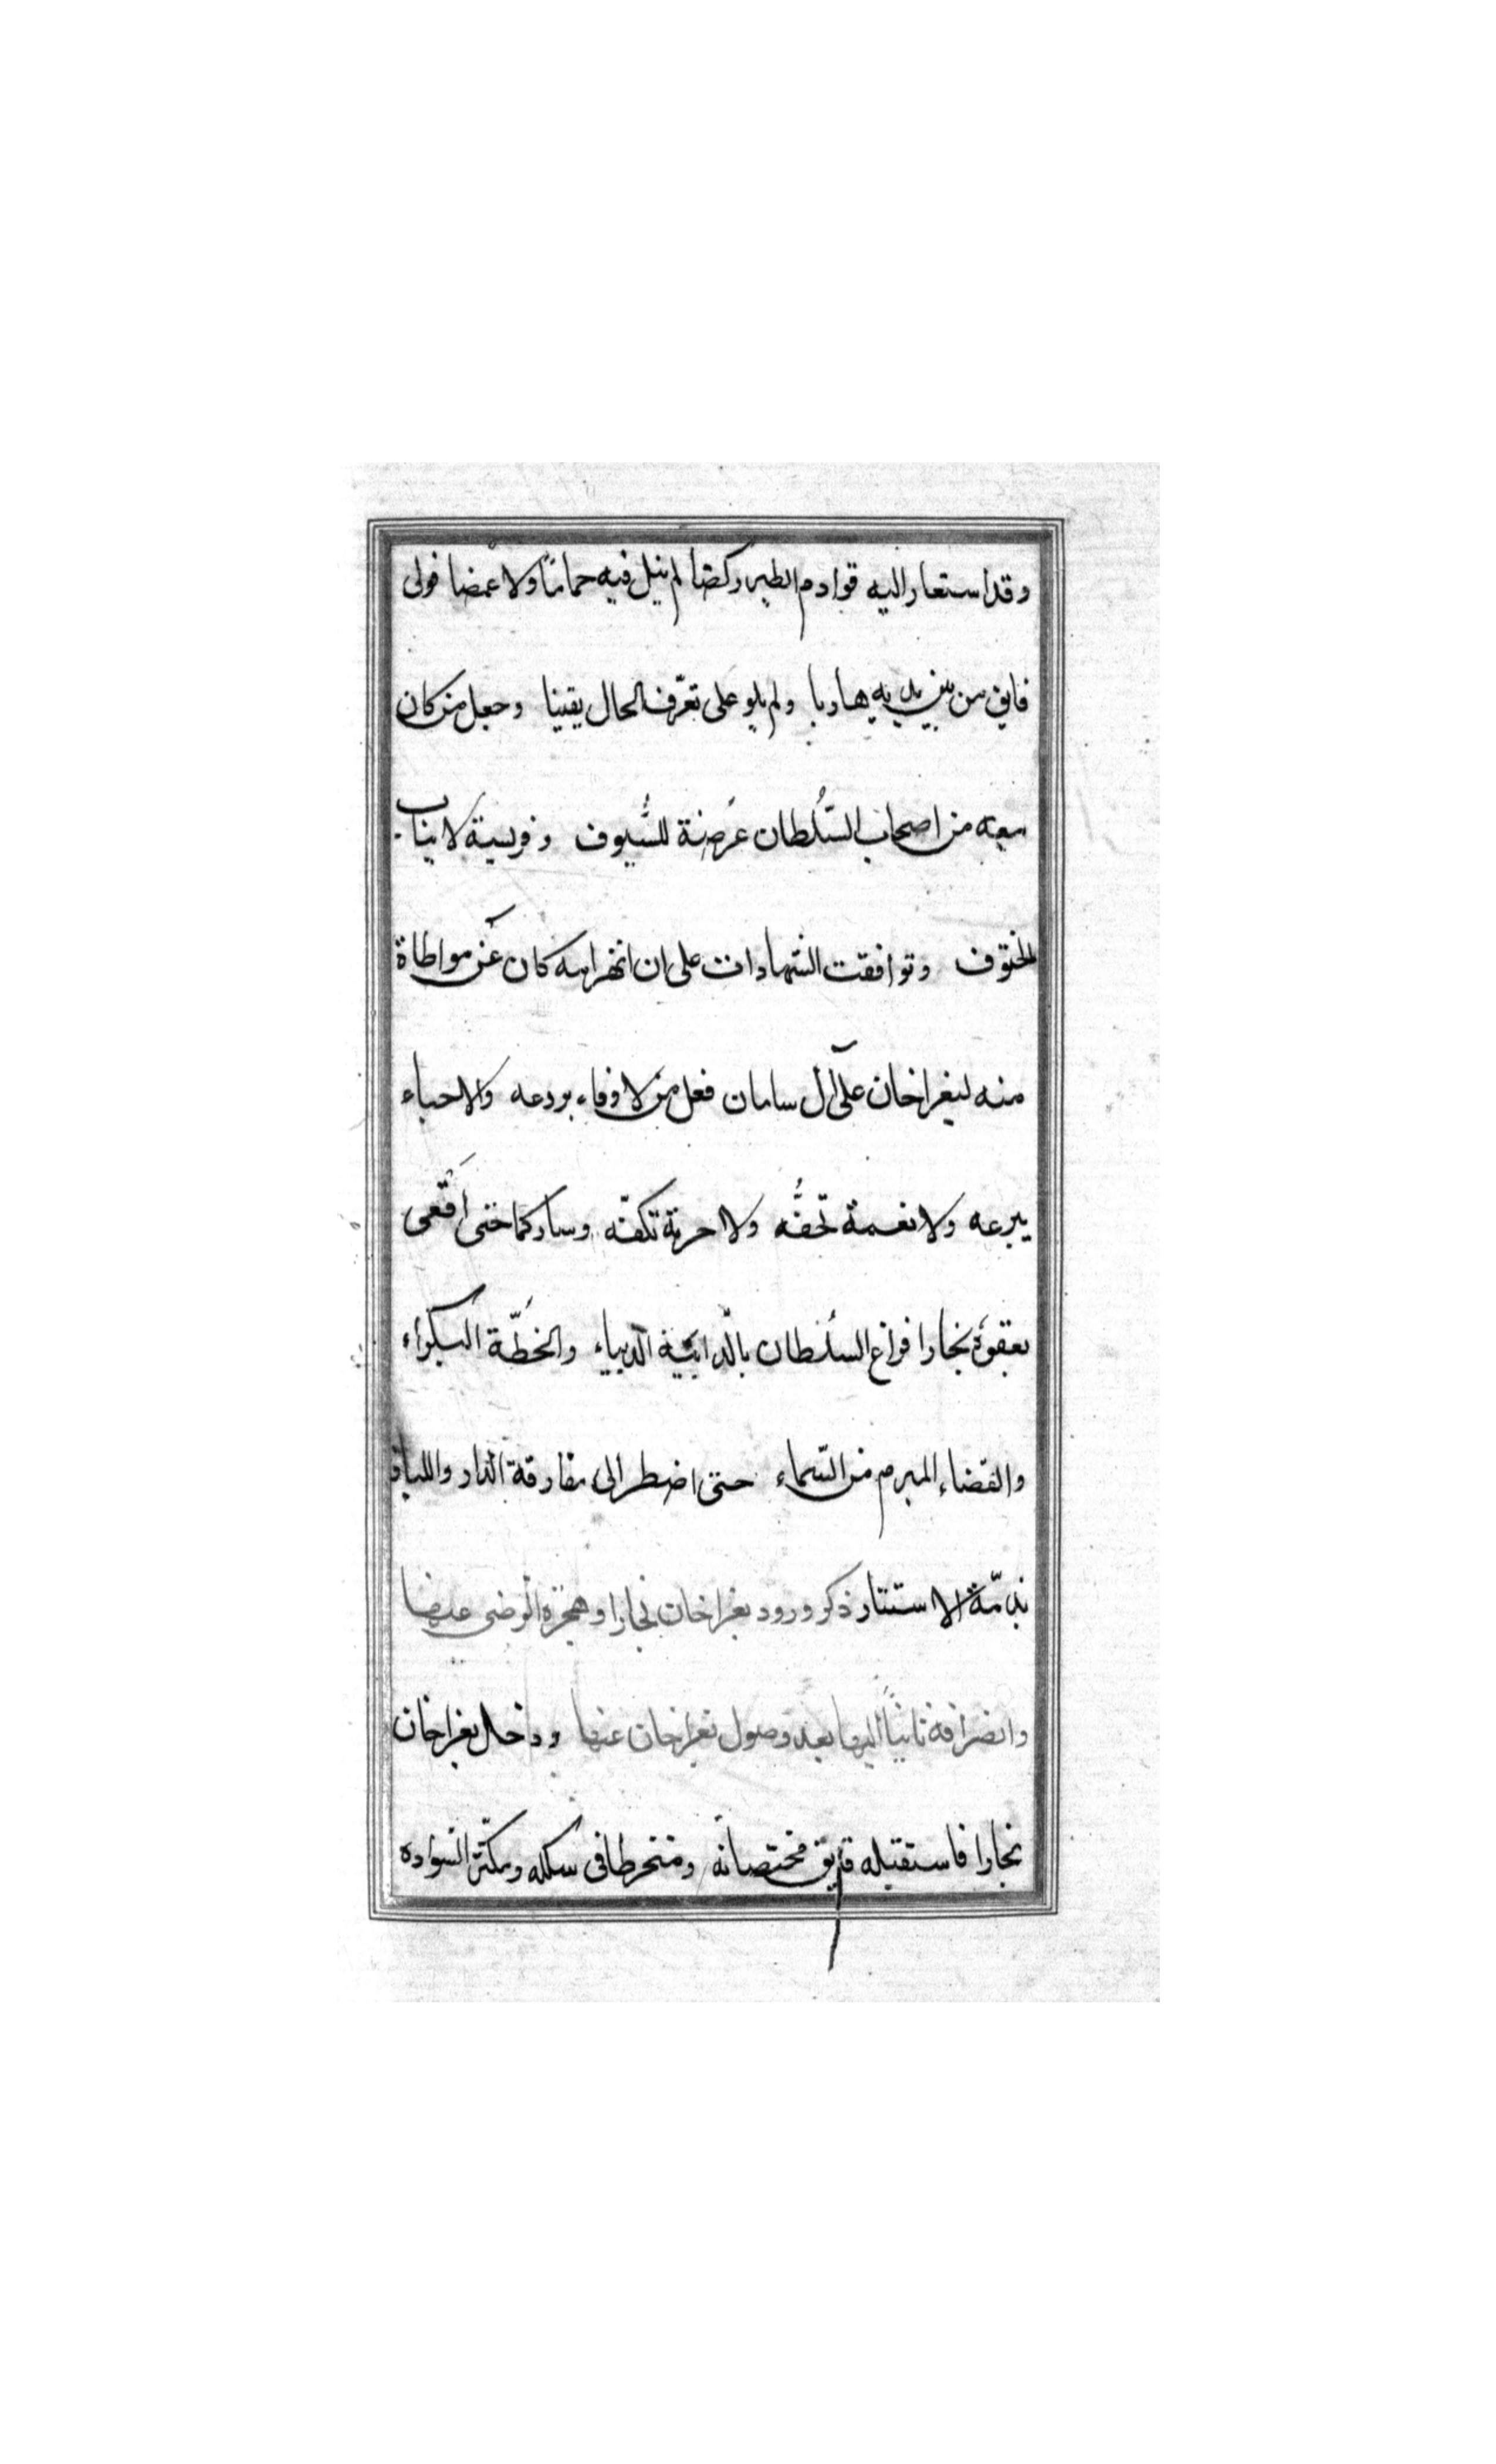 وقد استعار اليه قوادم الطير ركضا لم ينل فيه حماما ولا غمضا فولى
فايق من بين يديه هاربا ولم يلو على تعرّف الحال يقينا وجعل من كان
معه من اصحاب السّلُطان عُرضة للسُّيوف وفريسة لانياب
الحتوف وتوافقت الشهادات على ان انهزامه كان عَن مواطاة
منه لبغراخان على آل سامان فعل من لا وفاء بردعه ولا حياء
يبرعه ولا نعمة تحفُّه ولا حرية تكفّه وسار كما حتى اقْعى
بعقوة بخارا فراع السلطان بالداهية الدهياء والخطّة البكراء
والقضاء المبرم من السّماء حتى اضطر الى مفارقة الدار واللياذ
بذمّة الاستتار ذكر ورود بغراخان بخارا وهجرة الرضى عنها
وانصرافه ثانياً اليها بعد وصول بغراخان عنها ودخل بغراخان
بخارا فاستقبله فايق مختصا به ومنخرطا فى سلكه ومكثّر السواده